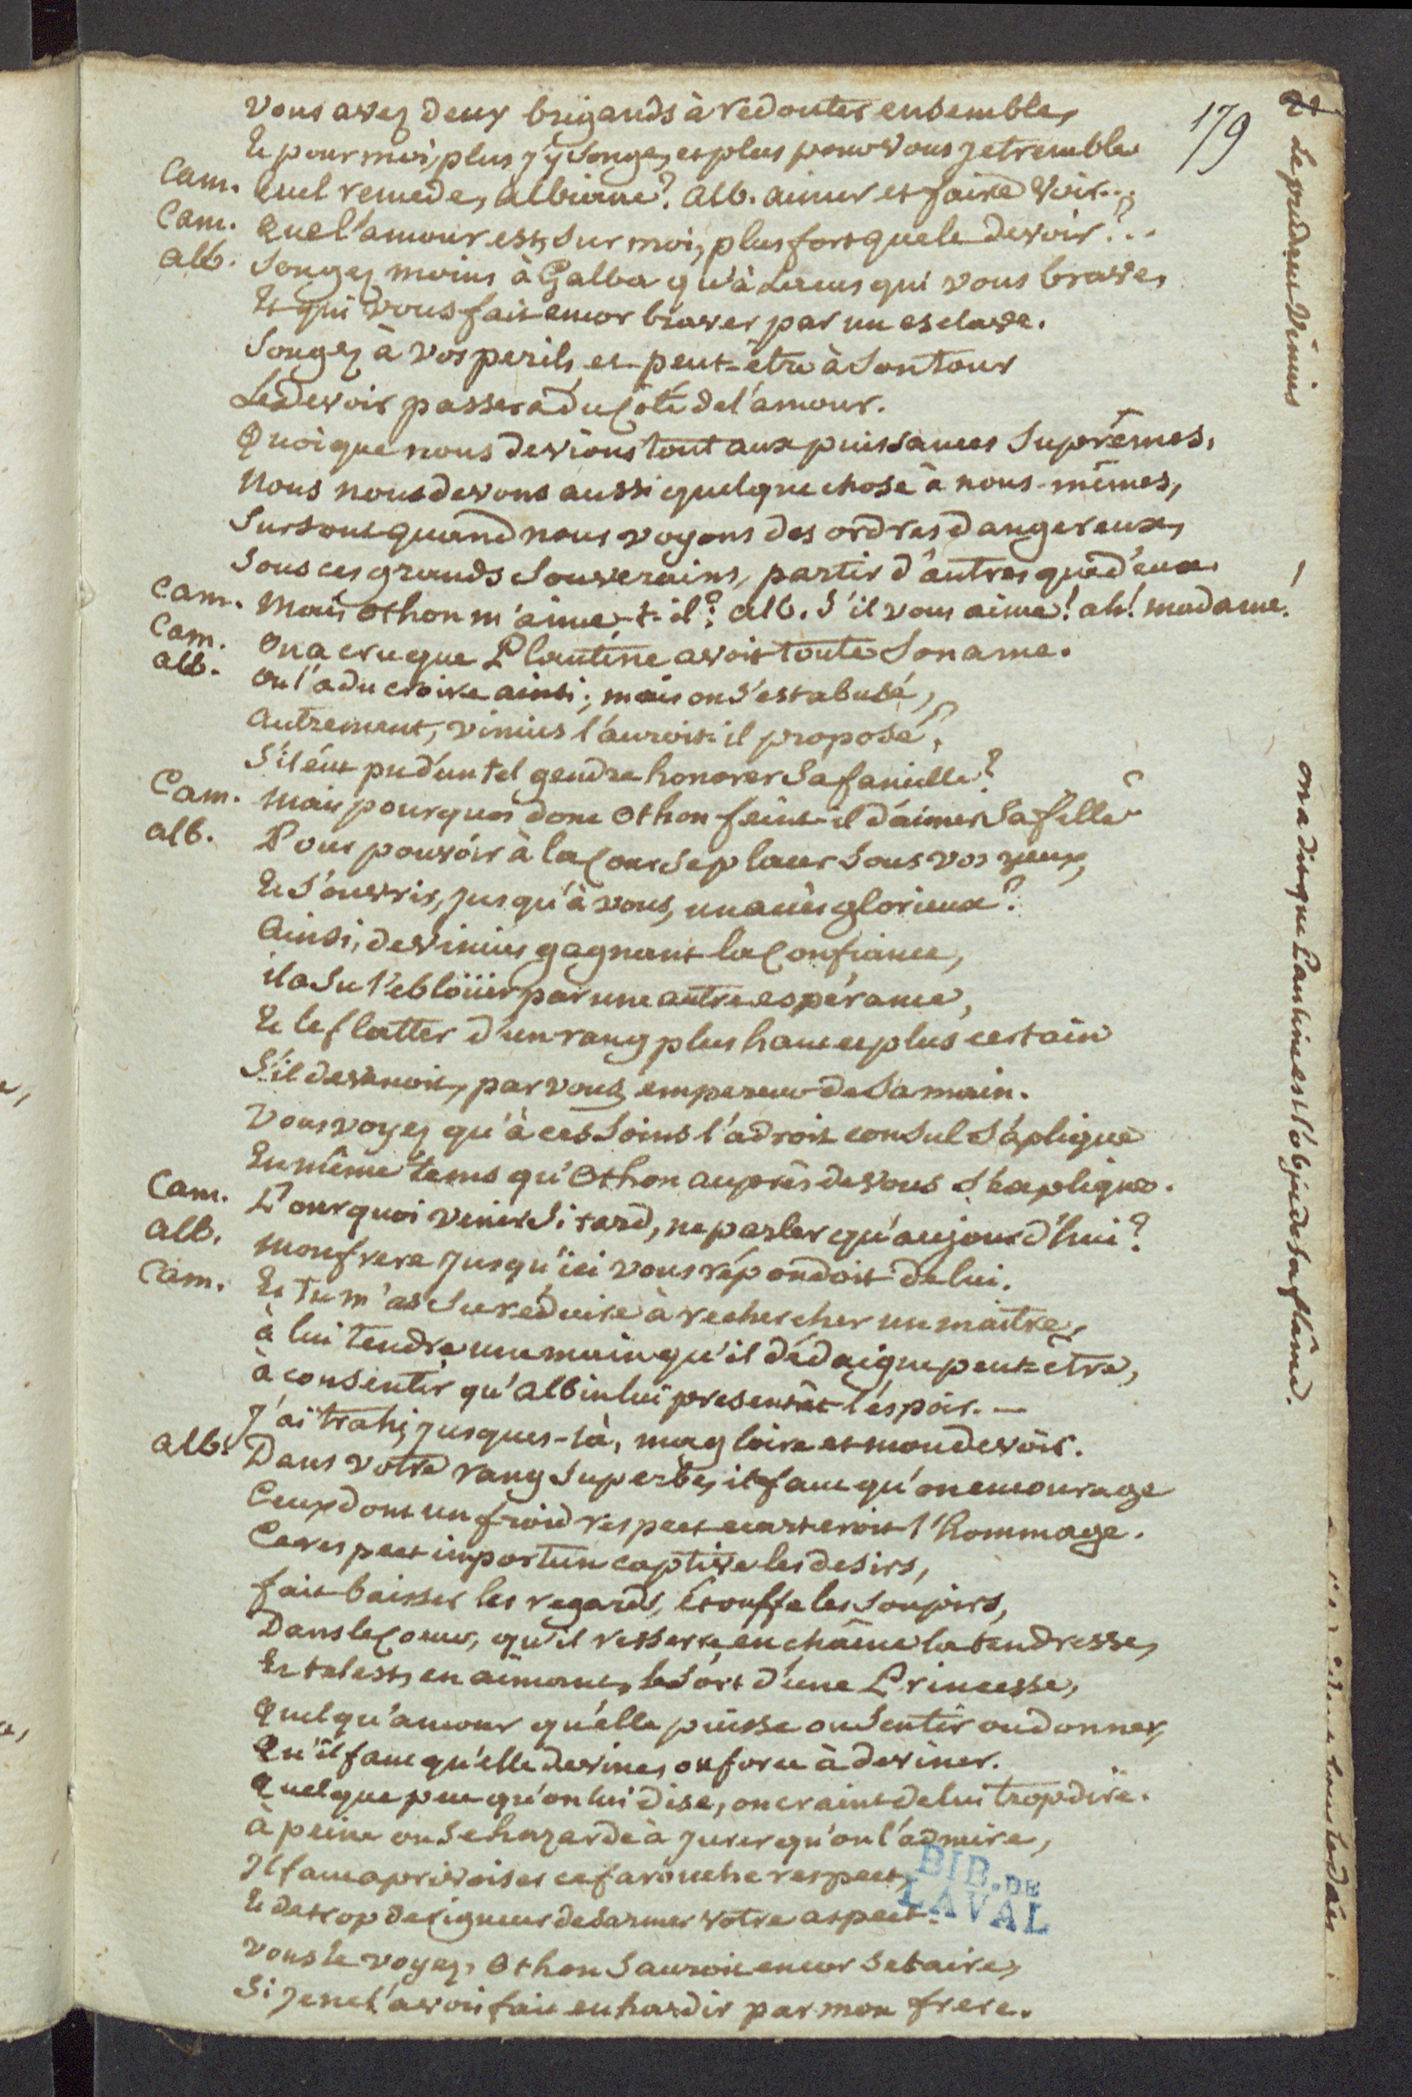 179
vous avez deux brigands à redouter ensemble,
Et pour moi, plus j'y songe, et plus pour vous je tremble
Cam. quel remede, albiane? alb. aimer et faire voir...
Cam. que l'amour est, sur moi, plus fort que le devoir?..
alb. songez moins à Galba qu'à Lacus qui vous brave,
Et qui vous fait encor braver par un esclave.
songez à vos perils, et peut-être à son tour
Le devoir passera du côté de l'amour.
Quoique nous devions tout aux puissances suprêmes,
nous nous devons aussi quelque chose à nous-mêmes,
surtout quand nous voyons des ordres dangereux,
sous ces grands souverains, partir d'autres que d'eux.
Cam. mais othon m'aime-t-il? alb. s'il vous aime! ah! madame.
Cam. on a cru que Plautine avoit toute son ame.
alb. on l'a du croire ainsi; mais on s'est abusé,
autrement, vinius l'auroit-il proposé?
s'il eût pu d'un tel gendre honorer sa famille?
Cam. mais pourquoi donc othon feint-il d'aimer sa fille
alb. Pour pouvoir à la Cour se placer sous vos yeux,
Et s'ouvrir, jusqu'à vous, un accès glorieux?
ainsi, de vinius gagnant la Confiance,
il a su l'eblöüir par une autre espérance,
Et le flatter d'un rang plus haut et plus certain
s'il devenoit, par vous, empereur de sa main.
vous voyez qu'à ces soins l'adroit consul s'aplique
En même tems qu'othon auprès de vous s'explique.
Cam. Pourquoi venir si tard, ne parler qu'aujourd'hui?
alb. mon frere jusqu'ici vous répondoit de lui.
Cam. Et tu m'as su réduire à rechercher un maître,
à lui tendre une main qu'il dédaigne peut-être,
à consentir qu'albin lui presentât l'espoir. —
J'ai trahi, jusques-là, ma gloire et mon devoir.
alb. Dans votre rang superbe, il faut qu'on encourage
Ceux dont un froid respect ecarteroit l'hommage.
Ce respect importun captive les desirs,
fait baisser les regards, étouffe les soupirs,
Dans le Coeur, qu'il resserre, enchaîne la tendresse,
Et tel est, en aimant, le sort d'une Princesse,
quelqu'amour qu'elle puisse ou sentir ou donner,
Qu'il faut qu'elle devine, ou force à deviner.
quelque peu qu'on lui dise, on craint de lui trop dire.
à peine on se hazarde à jurer qu'on l'admire,
Il faut aprivoiser ce farouche respect,
Et de trop de rigueur desarmer votre aspect.
vous le voyez, othon sauroit encor se taire,
si je ne l'avois fait enhardir par mon frere.
Le prudent Vinius
on a dit que Plautine est l'objet de sa flâme.
BIB. DE
LAVAL